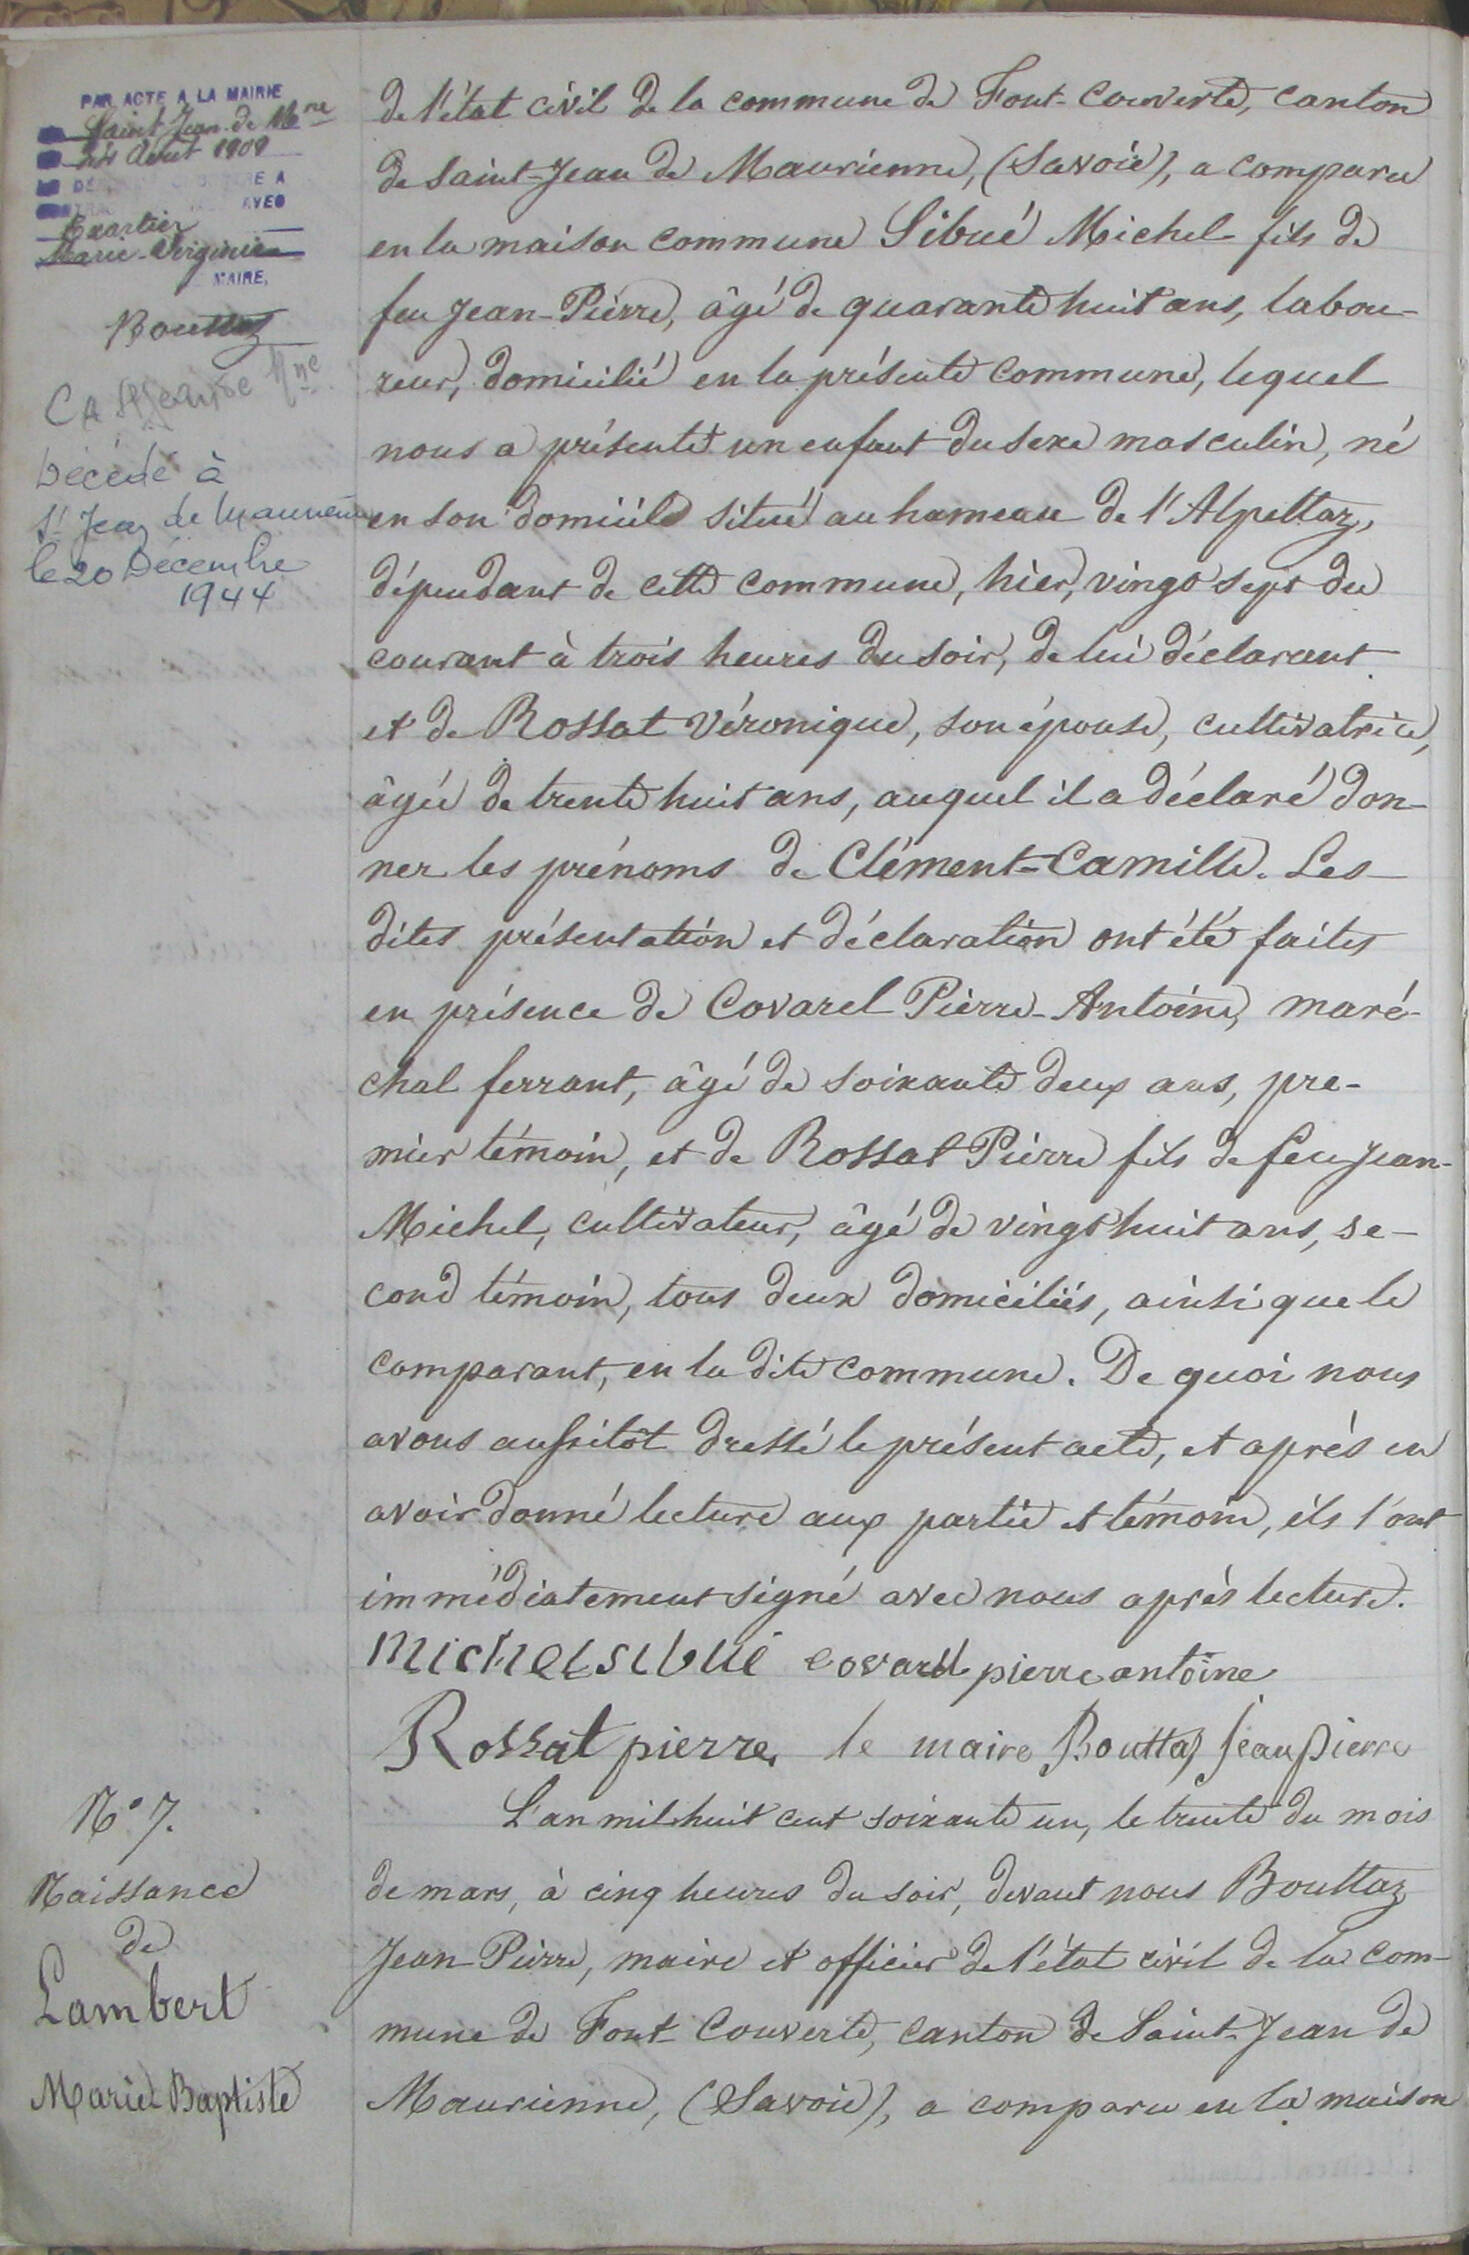 PAR ACTE A LA MAIRIE
Saint Jean de Mne
Août 1909
E A
AVEC
Marie-Virginie
MAIRE,
Bouttaz
Décédé à
St Jean de Maurienne
le 20 Décembre
1944
de l'état civil de la commune de Font-Couverte, canton
de Saint-Jean de Maurienne, (Savoie), a comparu
en la maison commune Sibué Michel fils de
feu Jean-Pierre, âgé de quarante huit ans, labou-
reur, domicilié en la présente commune, lequel
nous a présenté un enfant du sexe masculin, né
en son domicile situé au hameau de l'Alpettaz,
dépendant de cette commune, hier, vingt sept du
courant à trois heures du soir, de lui déclarant
et de Rossat Véronique, son épouse, cultivatrice,
âgée de trente huit ans, auquel il a déclaré don-
ner les prénoms de Clément-Camille. Les
dites présentation et déclaration ont été faites
en présence de Covarel Pierre-Antoine, maré-
chal ferrant, âgé de soixante deux ans, pre-
mier témoin, et de Rossat Pierre fils de feu Jean-
Michel, cultivateur, âgé de vingt huit ans, se-
cond témoin, tous deux domiciliés, ainsi que le
comparant, en la dite commune. De quoi nous
avons aussitôt dressé le présent acte, et après en
avoir donné lecture aux partie et témoin, ils l'ont
immédiatement signé avec nous après lecture.
Michel sibué covarel pierre antoine
Rossat pierre le maire Bouttaz Jean Pierre
N° 7.
Naissance
de
Lambert
Marie Baptiste
L'an mil huit cent soixante un, le trente du mois
de mars, à cinq heures du soir, devant nous Bouttaz
Jean-Pierre, maire et officier de l'état civil de la com-
mune de Font Couverte, canton de Saint-Jean de
Maurienne, (Savoie), a comparu en la maison